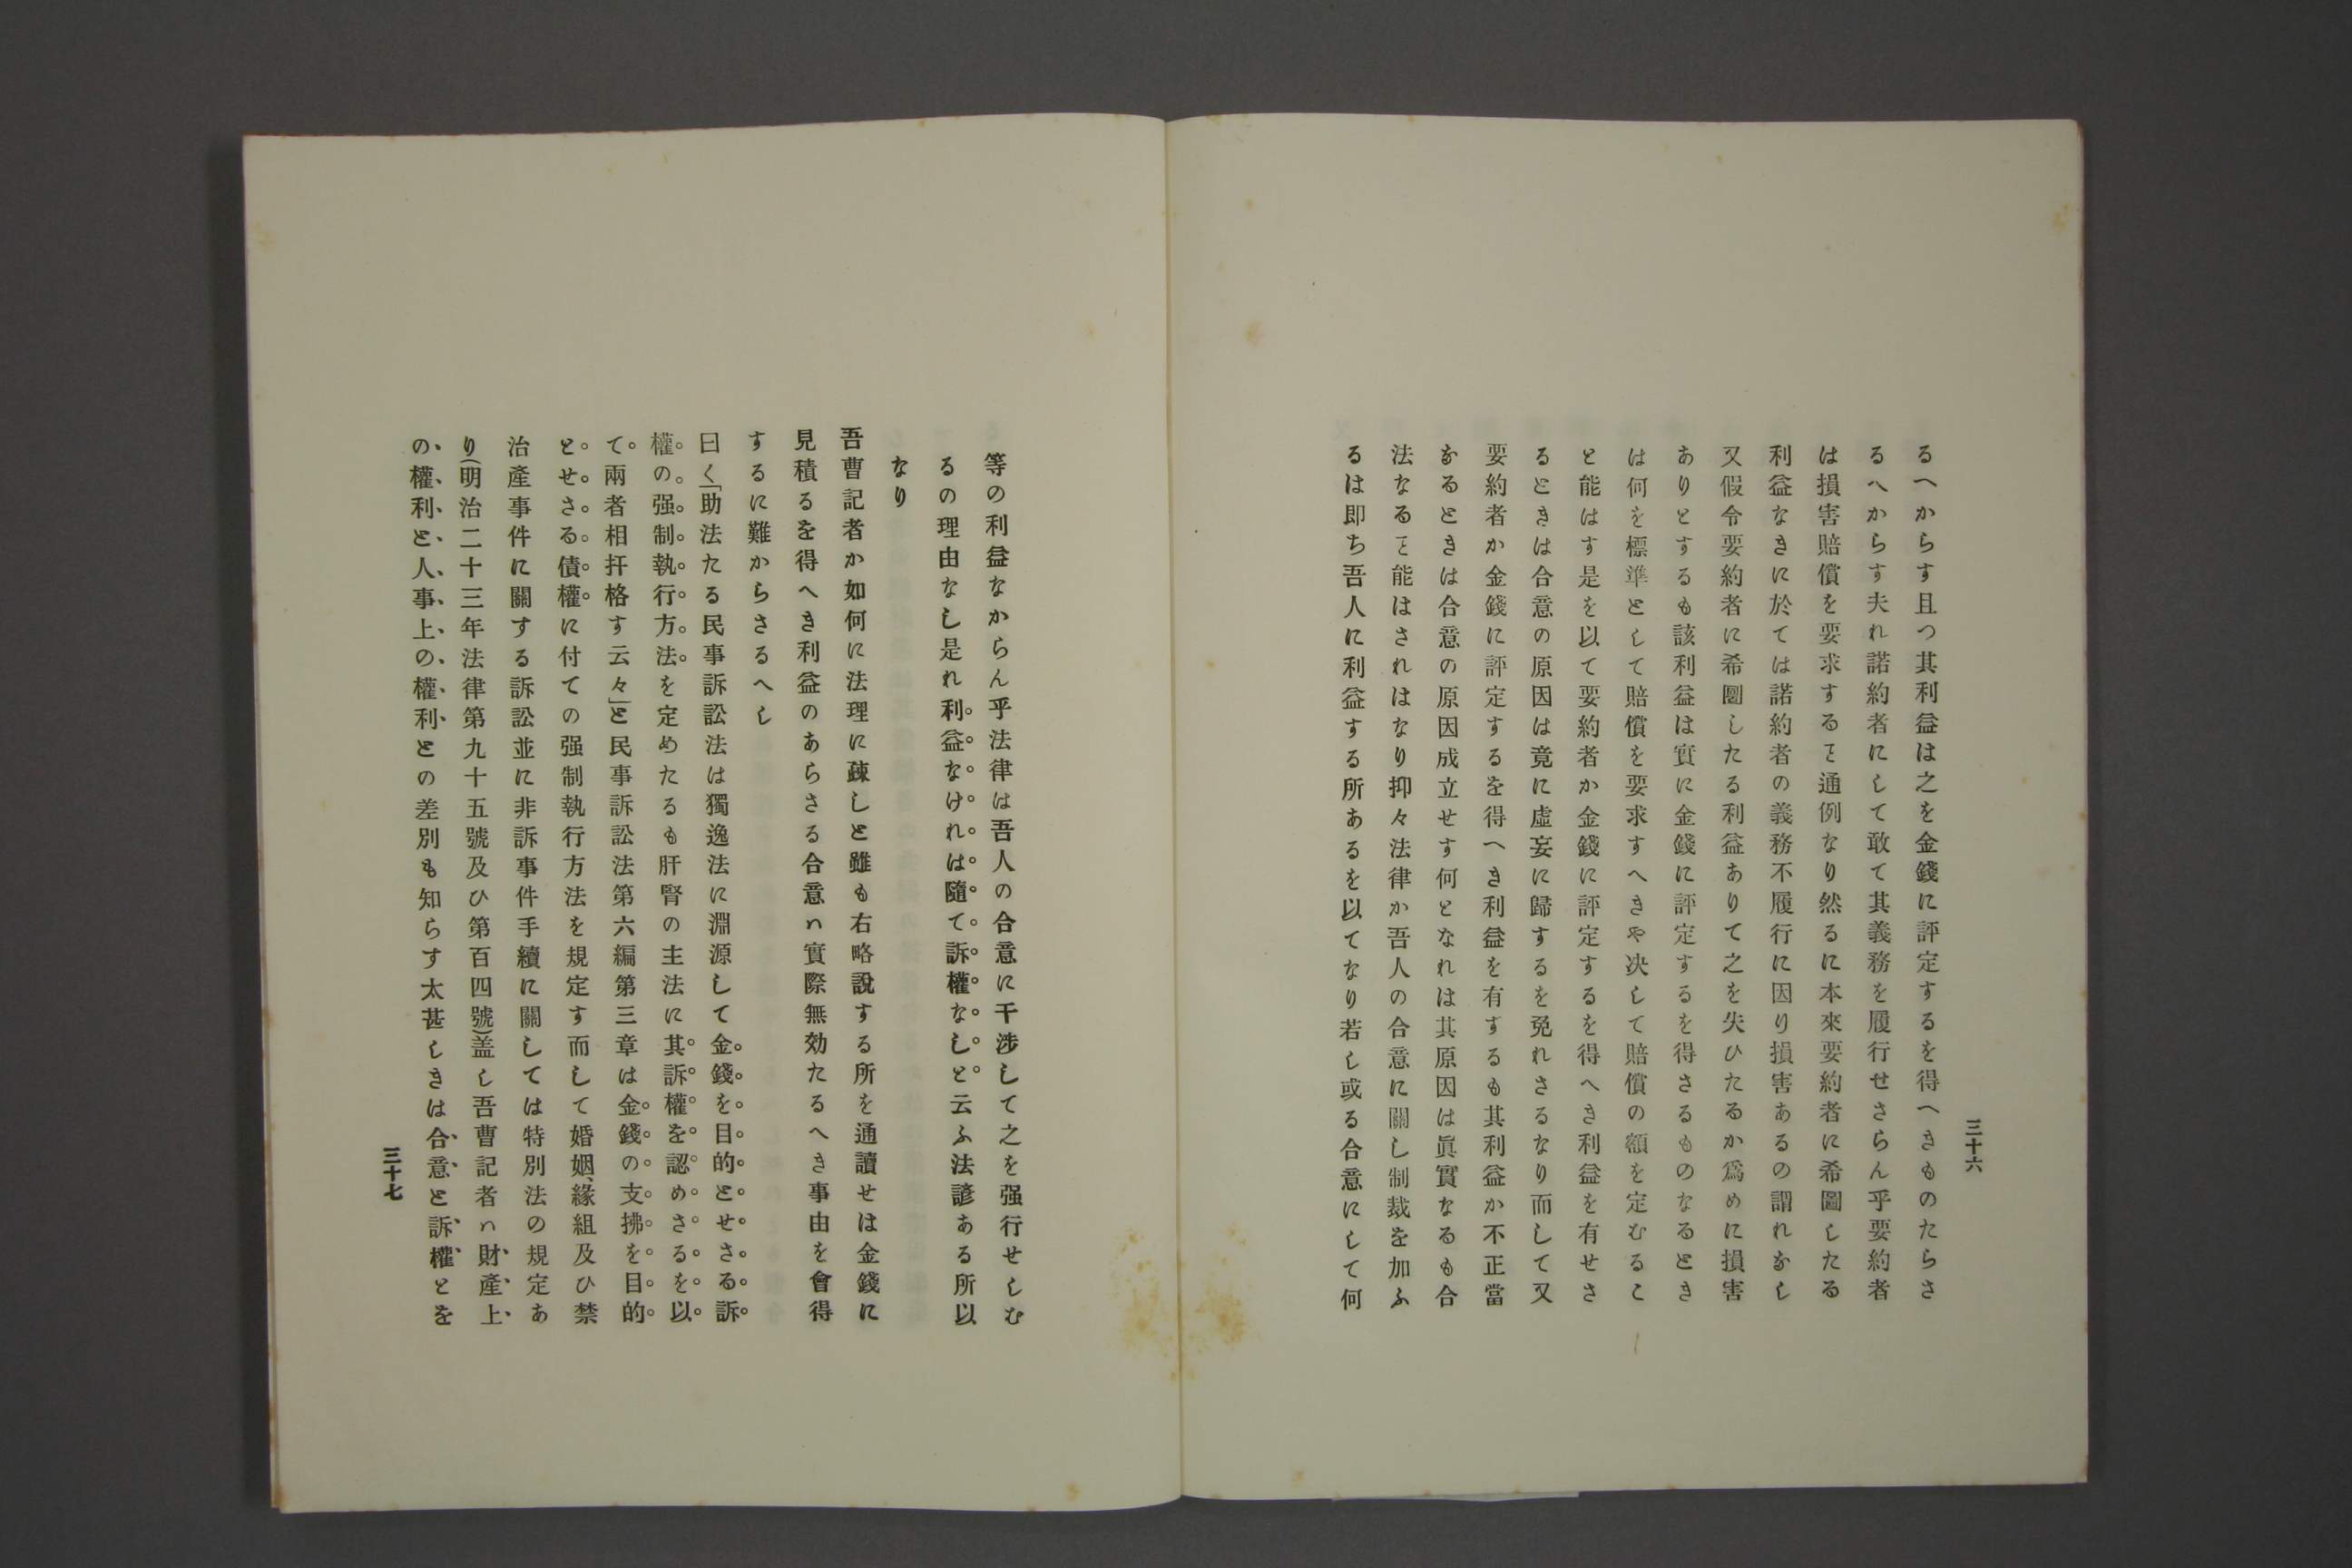 三十六
るへからす且つ其利益は之を金錢に評定するを得へきものたらさ
るへからす夫れ諾約者にして敢て其義務を履行せさらん乎要約者
は損害賠償を要求するヿ通例なり然るに本來要約者に希圖したる
利益なきに於ては諾約者の義務不履行に因り損害あるの謂れなし
又假令要約者に希圖したる利益ありて之を失ひたるか爲めに損害
ありとするも該利益は實に金錢に評定するを得さるものなるとき
は何を標準として賠償を要求すへきや决して賠償の額を定むるこ
と能はす是を以て要約者か金錢に評定するを得へき利益を有せさ
るときは合意の原因は竟に虛妄に歸するを免れさるなり而して又
要約者か金錢に評定するを得へき利益を有するも其利益か不正當
なるときは合意の原因成立せす何となれは其原因は眞實なるも合
法なるヿ能はされはなり抑々法律か吾人の合意に關し制裁を加ふ
るは即ち吾人に利益する所あるを以てなり若し或る合意にして何
等の利益なからん乎法律は吾人の合意に干渉して之を强行せしむ
るの理由なし是れ利益なけれは隨て訴權なしと云ふ法諺ある所以
なり
吾曹記者か如何に法理に疎しと雖も右略說する所を通讀せは金錢に
見積るを得へき利益のあらさる合意ハ實際無効たるへき事由を會得
するに難からさるへし
曰く「助法たる民事訴訟法は獨逸法に淵源して金錢を目的とせさる訴
權の强制執行方法を定めたるも肝腎の主法に其訴權を認めさるを以
て兩者相扞格す云々」と民事訴訟法第六編第三章は金錢の支拂を目的
とせさる債權に付ての强制執行方法を規定す而して婚姻、緣組及ひ禁
治產事件に關する訴訟並に非訴事件手續に關しては特別法の規定あ
り(明治二十三年法律第九十五號及ひ第百四號)盖し吾曹記者ハ財產上
の權利と人事上の權利との差別も知らす太甚しきは合意と訴權とを
三十七